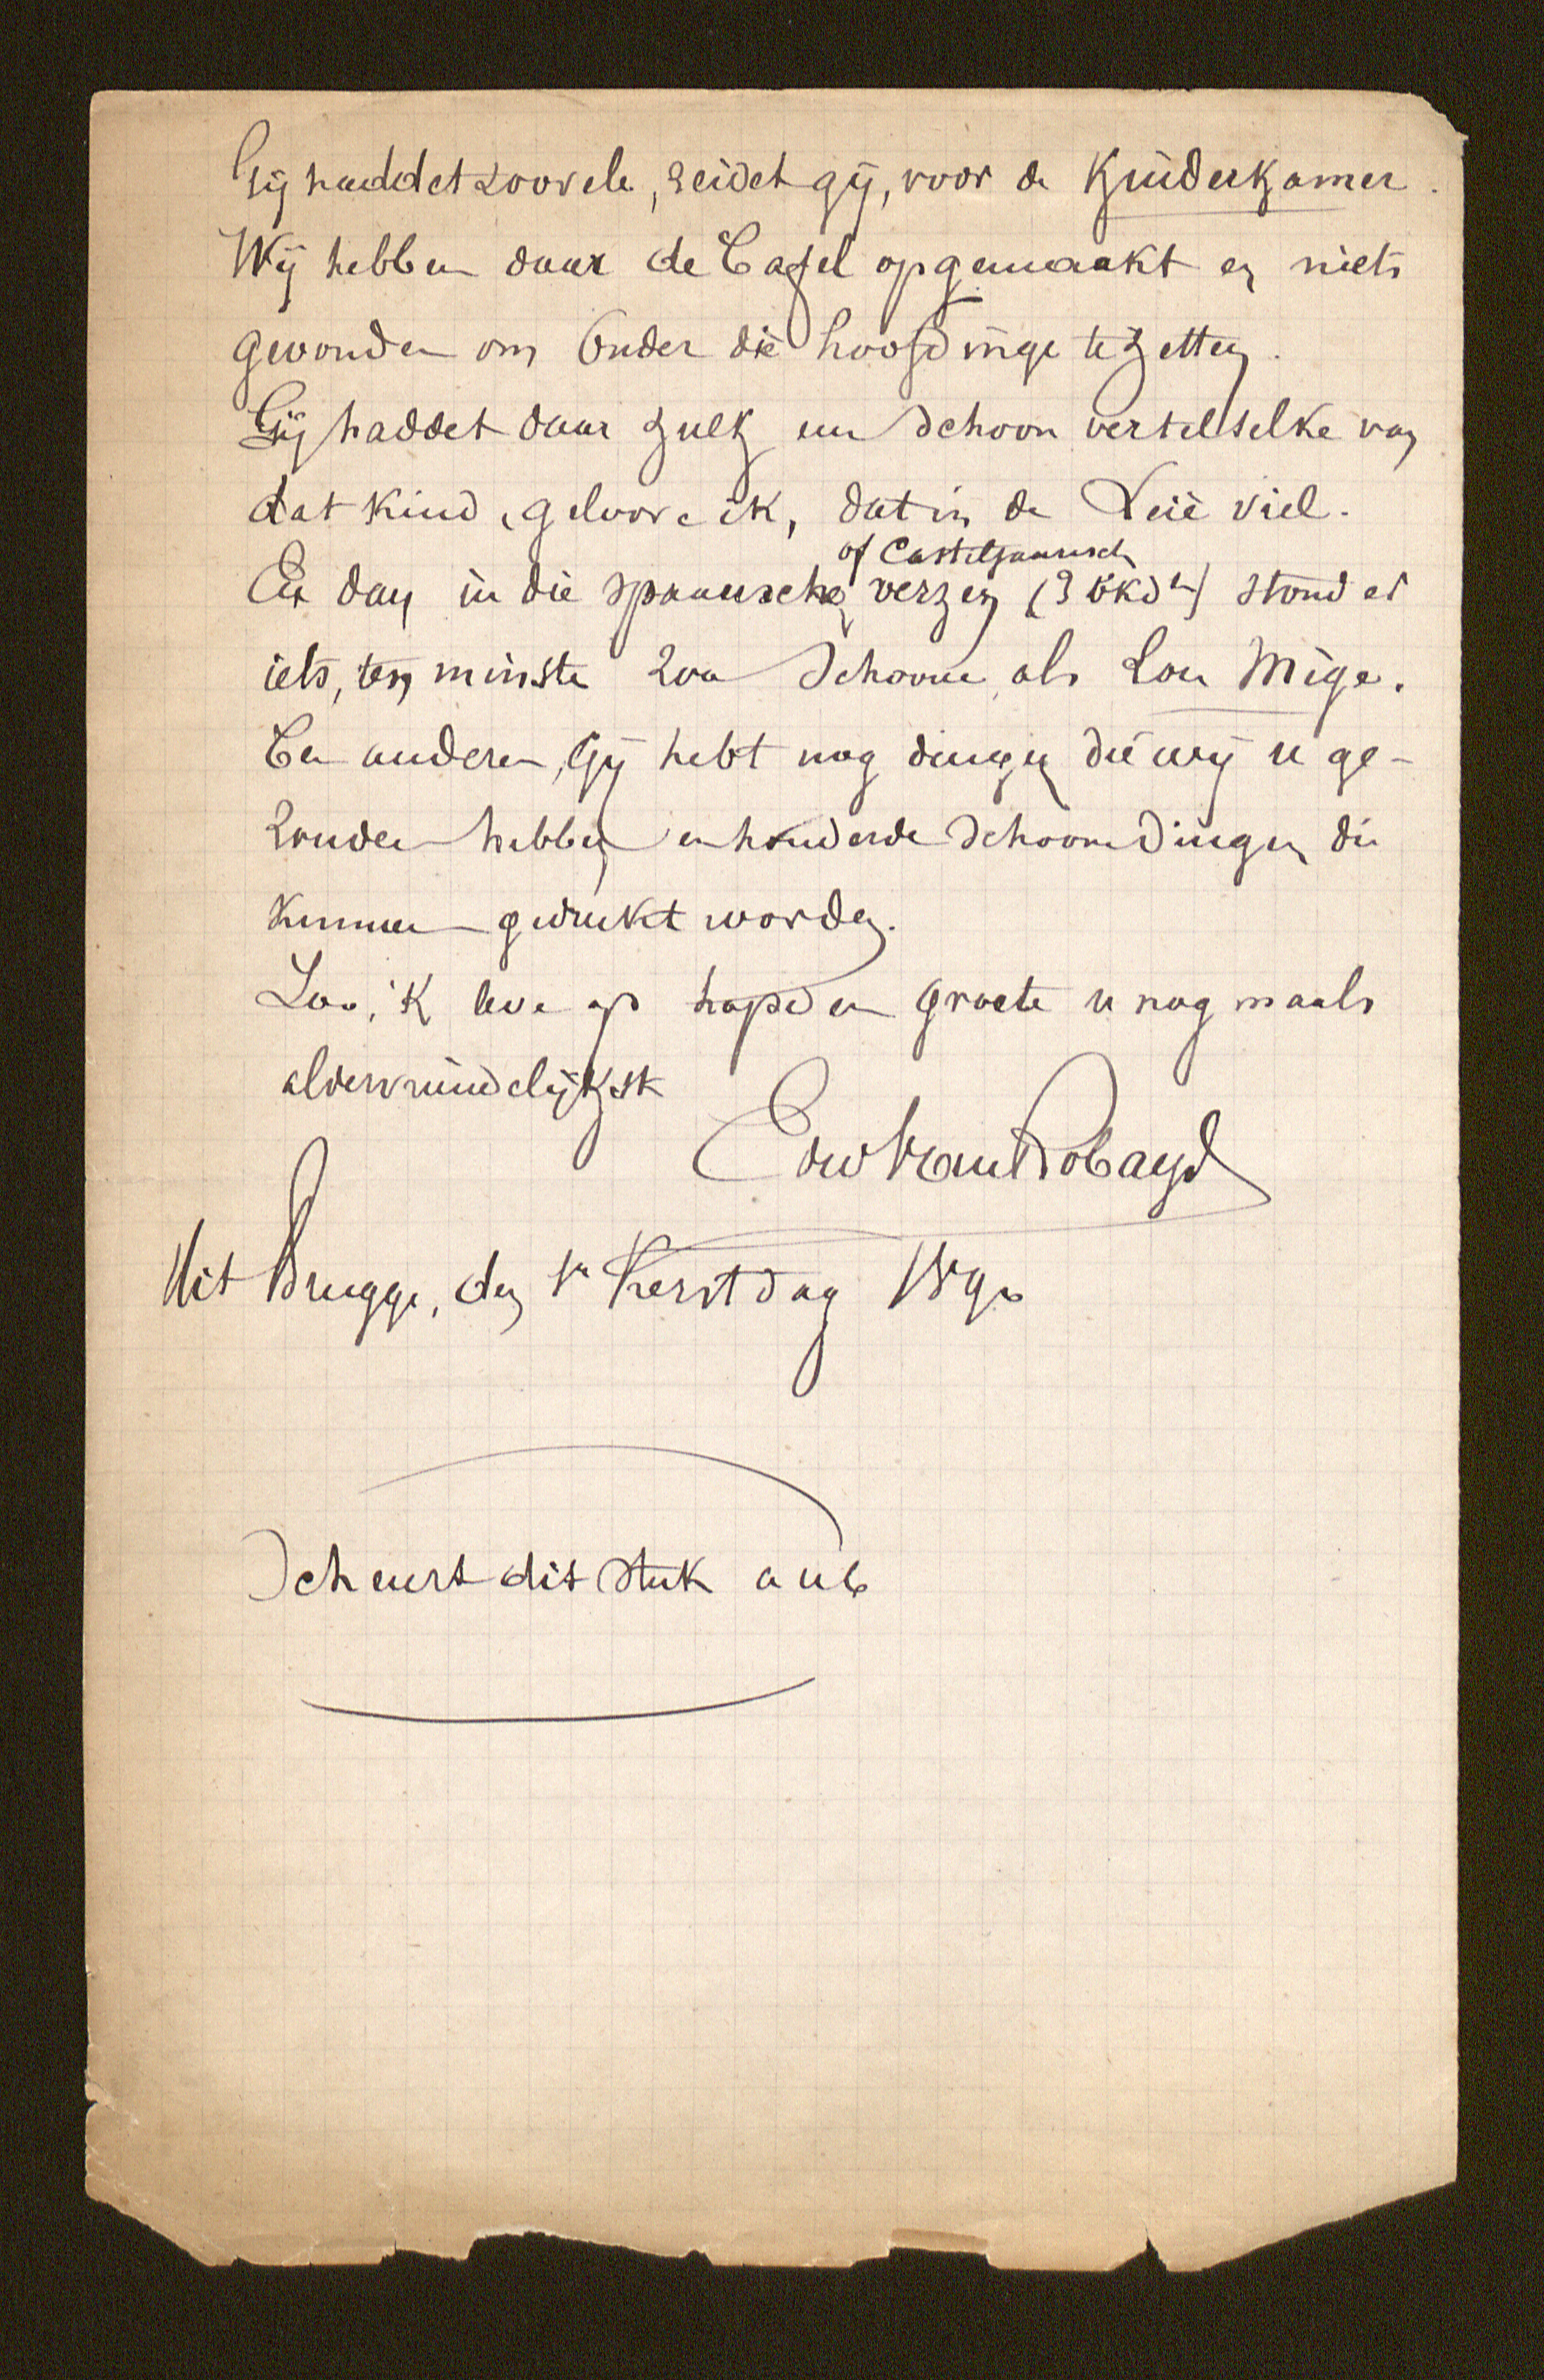 Gij haddet zoovele, zeidet gij, voor de Kinderkamer.
Wij hebben daar de Tafel opgemaakt en niets
gevonden om onder die hoofdinge te zetten.
Gij haddet daar zulk een schoon vertelselke van
dat kind, geloove ik, dat in de Leië viel.
of Castiljaansch
En dan in die spaansche verzen stond er
iets, ten minste zoo schoone als Lou Mige.
Ten anderen, Gij hebt nog dingen die wij u ge-
zonden hebben en honderde schoone dingen die
kunnen gedrukt worden.
Zoo, 'k leve op hope en groete u nog maals
aldervriendelijkst
Edw Van Robays
Uit Brugge, den 1n Kerstdag 1890
Scheurt dit stuk aub